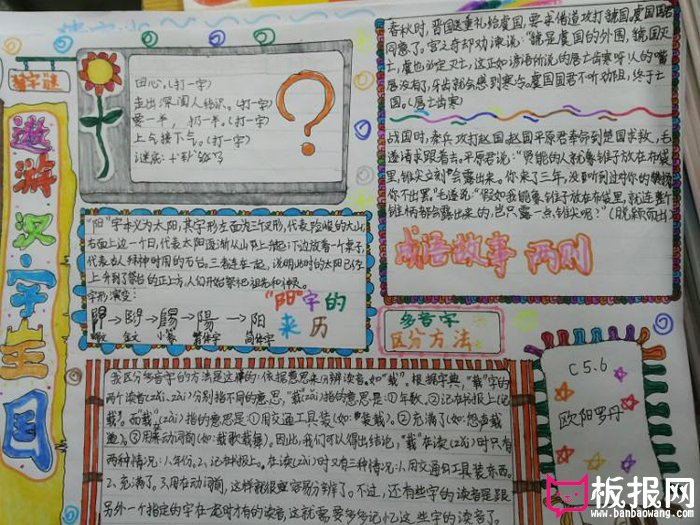 猜字谜
遨游汉字王国
田心。(打一字)
走出深闺人结识。(打一字)
要一半,扔一半。(打一字)
上气接下气。(打一字)
谜底:
春秋时,晋国送重礼给虞国,要求借道攻打虢国,虞国国君
同意了。宫之奇却劝谏说:“虢是虞国的外围,虢国灭
亡,虞也必定灭亡,这正如谚语所说的唇亡齿寒呀!人的嘴
唇没有了,牙齿就会感到寒冷。虞国国君不听劝阻,终于亡
国。(唇亡齿寒)
战国时,秦兵攻打赵国,赵国平原君奉命到楚国求救,毛
遂请求跟着去。平原君说:“贤能的人就象锥子放在布袋
里,锥尖立刻会露出来。你来了三年,没听到过对你的
你不出罢。”毛遂说:“假如我能象锥子放在布袋里,就连整个
锥柄都会露出来的,岂只露一点锥尖呢?”(脱颖而出)
成语故事 两则
“阳”字本义为太阳,其字形左面为三个叉形,代表险峻的大山
右面上边一个日,代表太阳逐渐从山早上抬起;下边放着一个桌子,
代表古人拜神时用的石台。三者连在一起,说明此时的太阳已经
上升到了祭台的正上方,人们开始祭祀祖先和神灵。
字形演变:
→ → →陽→阳
金文 小篆 繁体字 简体字
“阳”字的
来历
多音字
区分方法
我区分多音字的方法是这样的:依据意思来分辨读音。如“载”,根据字典,“载”字的
两个读音(zǎi)(zài)分别指不同的意思,“载”(zǎi)指的意思是:①年歌,②记在书报上(记
载)。而“载”(zài)指的意思是①用交通工具装(如:“装载)。②充满了(如:怨声载
道)。③用来动词前(如:载歌载舞)。因此,我们可以得出结论,“载”在读(zǎi)时只有
两种情况:1.年份。2、记在书报上。在读(zài)时又有三种情况:1.用交通工具装东西。
2、充满了。3.用在动词前,这样就很容易分辨了。不过,还有些字的读音是跟
另外一个指定的字在一起时有的读音,这就需要多多记忆这些字的读音了。
C5.6
欧阳罗丹
板报网
www.banbaowang.com